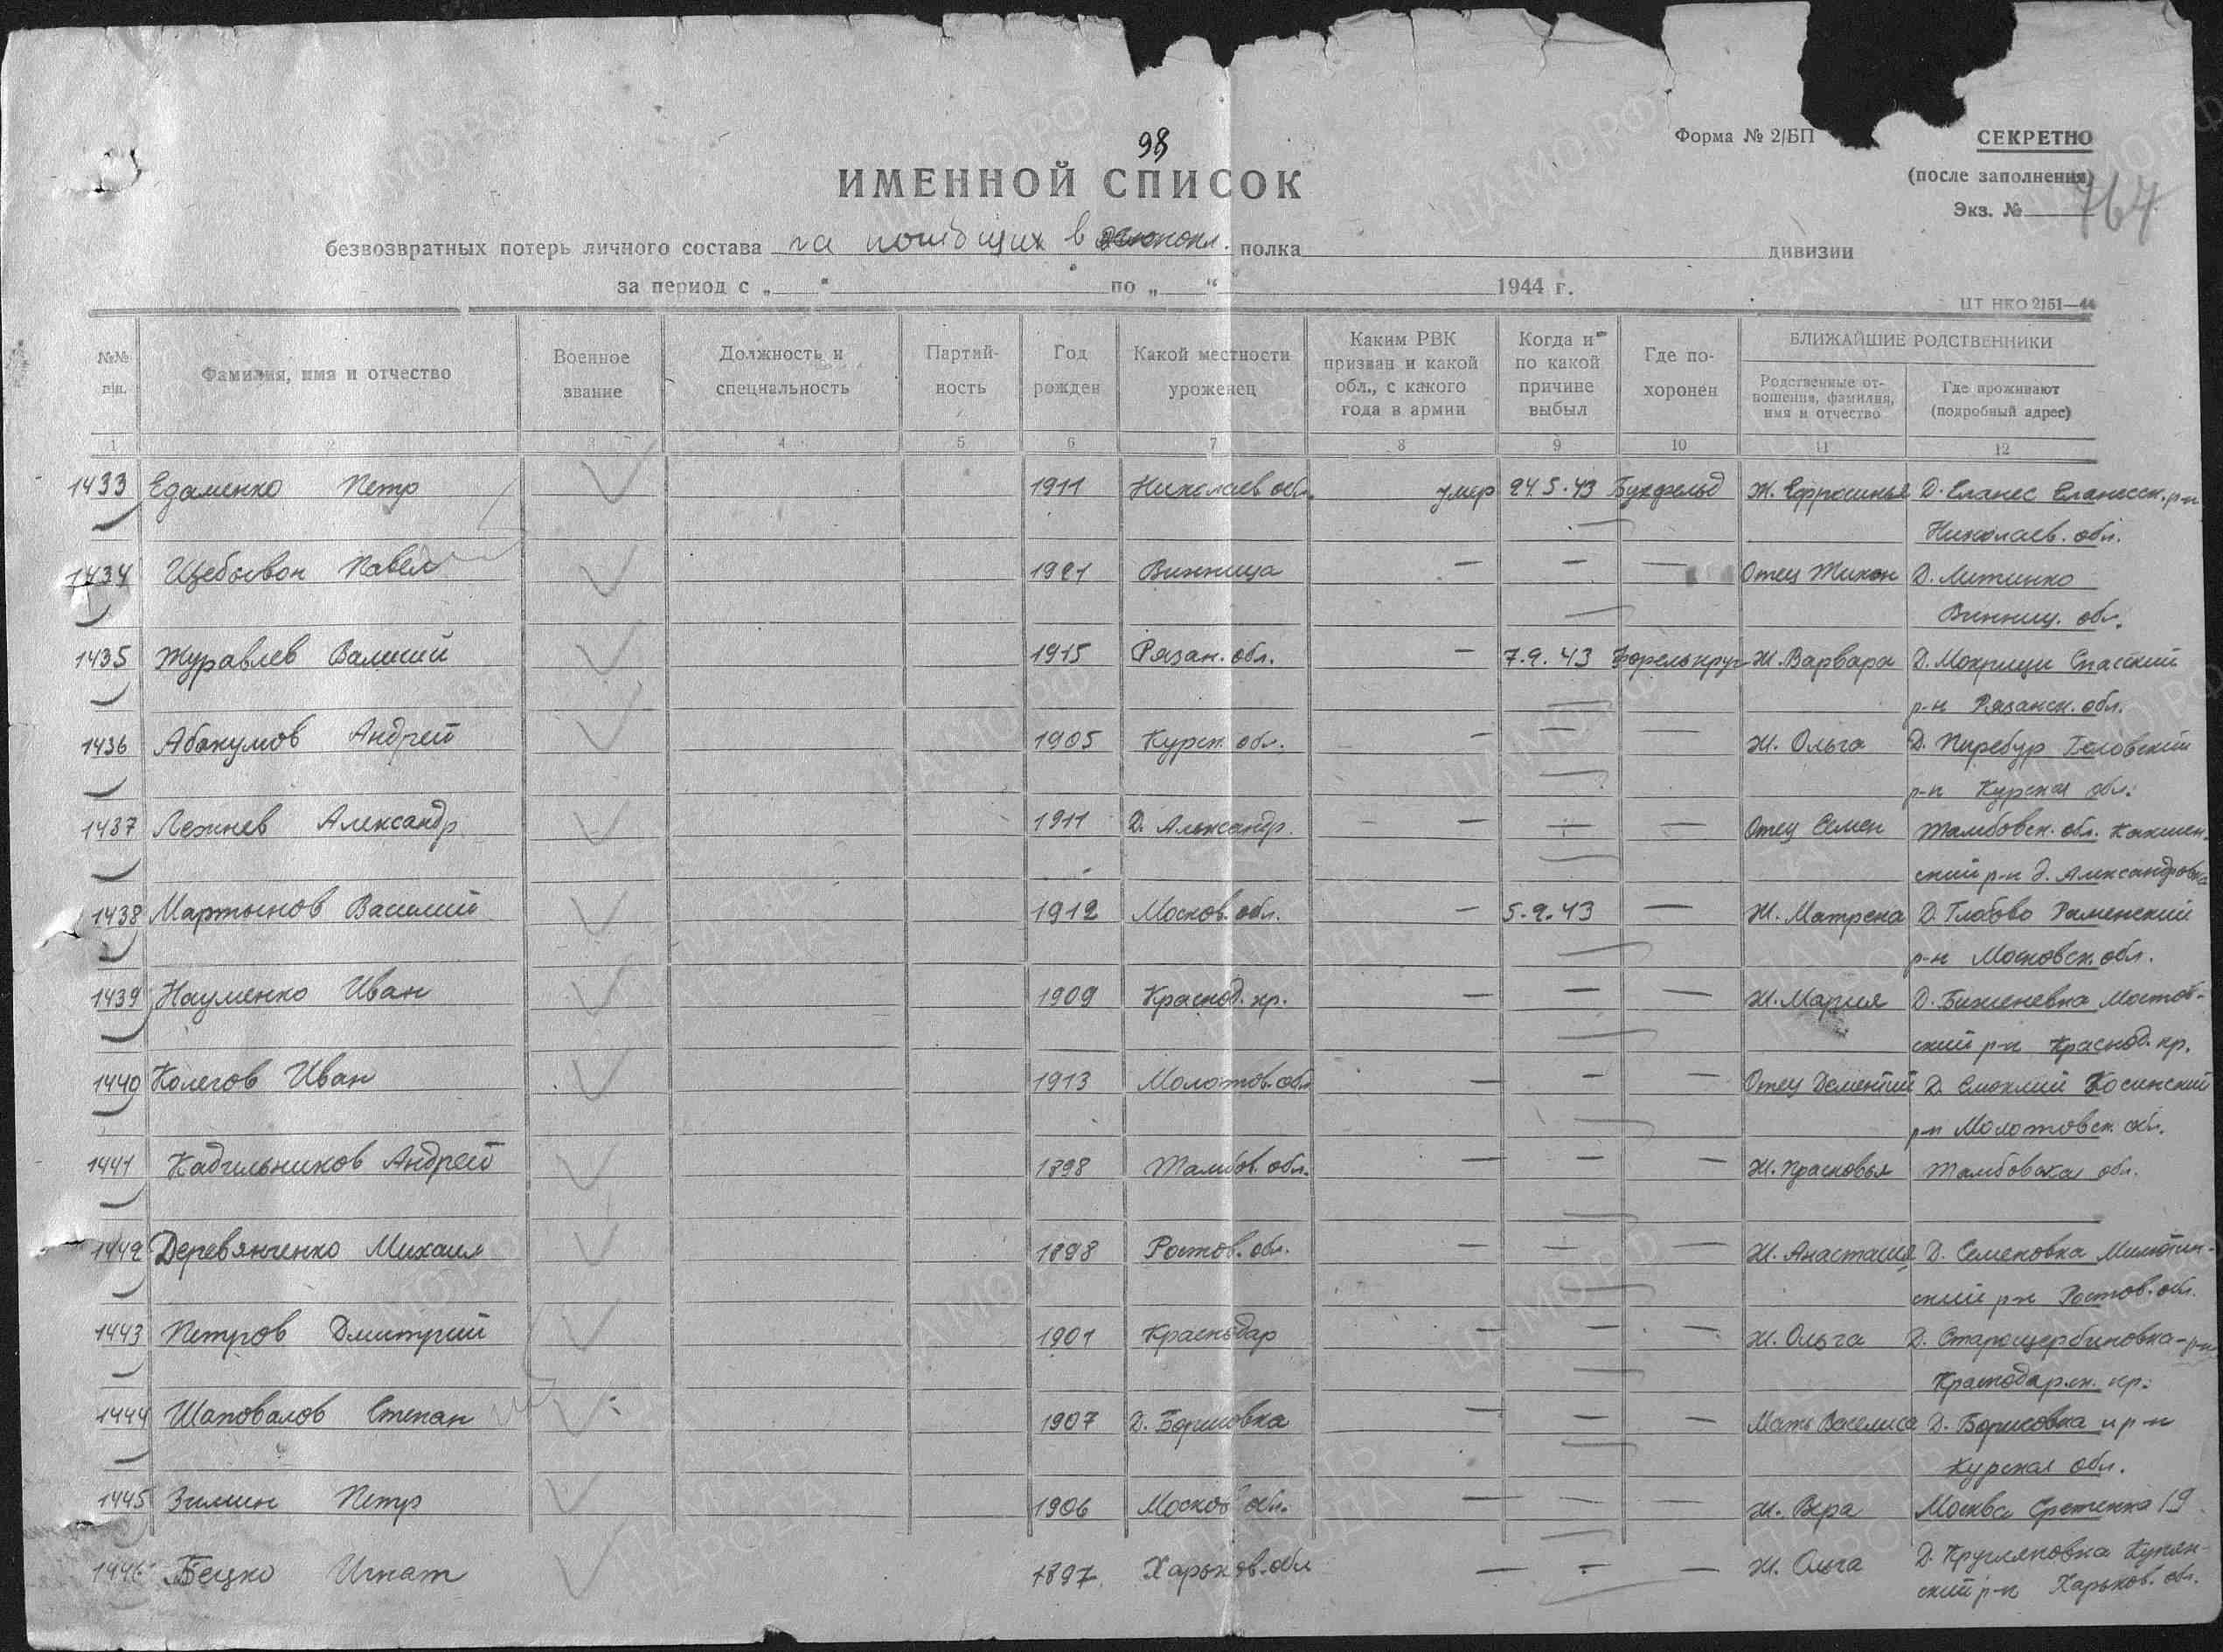 98
Форма № 2/БП
СЕКРЕТНО
(после заполнения)
764
Экз. №
ИМЕННОЙ СПИСОК
безвозвратных потерь личного состава на погибших в полка дивизии
за период с „ “ по „ “ 1944 г.
ЦТ НКО 2151—44
№№ п/п. Фамилия, имя и отчество Военное звание Должность и специальность Партийность Год рожден Какой местности уроженец Каким РВК призван и какой обл., с какого года в армии Когда и по какой причине выбыл Где похоронен БЛИЖАЙШИЕ РОДСТВЕННИКИ
Родственные отношения, фамилия, имя и отчество Где проживают (подробный адрес)
1 2 3 4 5 6 7 8 9 10 11 12
1433 Едаменко Петр 1911 Николаев обл. умер 24.5.43 Бухфельд Ж. Ефросинья Д. Еланес Еланесск. р-н
Николаев. обл.
1434 Щебывон Павел 1921 Винница — — — Отец Тихон Д. Литинко
Винниц. обл.
1435 Журавлев Валший 1915 Рязан. обл. — 7.9.43 Форелькруг Ж. Варвара Д. Мокрищи Спасский
р-н Рязанск. обл.
1436 Абакумов Андрей 1905 Курск. обл. — — — Ж. Ольга Д.
р-н Курская обл.
1437 Лежнев Александр 1911 Д. Александр. — — — Отец Семен Тамбовск. обл.
ский р-н д. Александровка
1438 Мартынов Василий 1912 Москов. обл. — 5.9.43 — Ж. Матрена Д. Глебово Раменский
р-н Московск. обл.
1439 Науменко Иван 1909 Краснод. кр. — — — Ж. Мария Д. Бижгеневка Мостов-
ский р-н Краснод. кр.
1440 Колегов Иван 1913 Молотов. обл — — — Отец Дементий Д. Косинский
р-н Молотовск. обл.
1441 Кадильников Андрей 1898 Тамбов. обл. — — — Ж. Прасковья Тамбовска обл.
1442 Деревянченко Михаил 1898 Ростов. обл. — — — Ж. Анастасия Д. Семеновка Милютин-
ский р-н Ростов. обл.
1443 Петров Дмитрий 1901 Краснодар — — — Ж. Ольга Д. Старощербиновка-р-н
Краснодарск. кр.
1444 Шаповалов Степан 1907 Д. Борисовка — — — Мать Василиса Д. Борисовка и р-н
Курская обл.
1445 Зимин Петр 1906 Москов обл. — — — Ж. Вера Москва Сретенка 19
1446 Бецко Игнат 1897 Харьков. обл — — — Ж. Ольга Д. Кругляковка Купян-
ский р-н Харьков. обл.